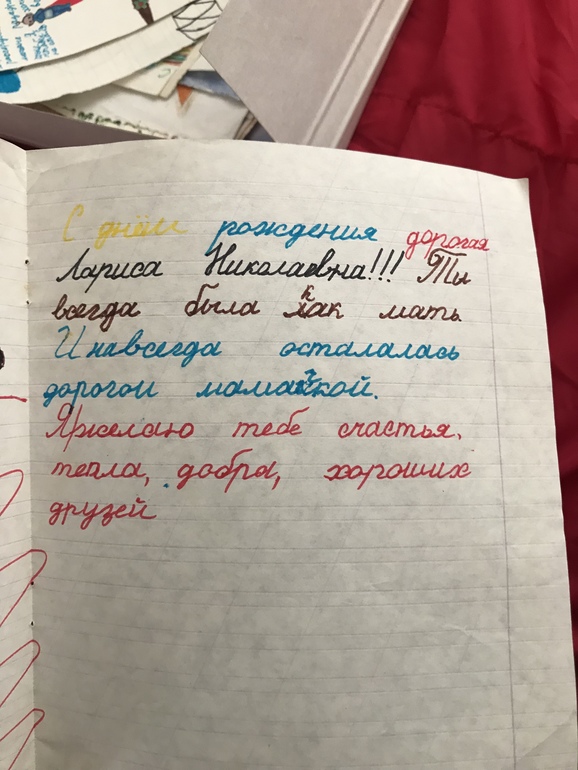 С днём рождения дорогая
Лариса Николаевна!!! Ты
всегда была как мать.
И навсегда осталалась
дорогой мамайкой.
Яржелаю тебе счастья,
тепла, добра, хороших
друзей